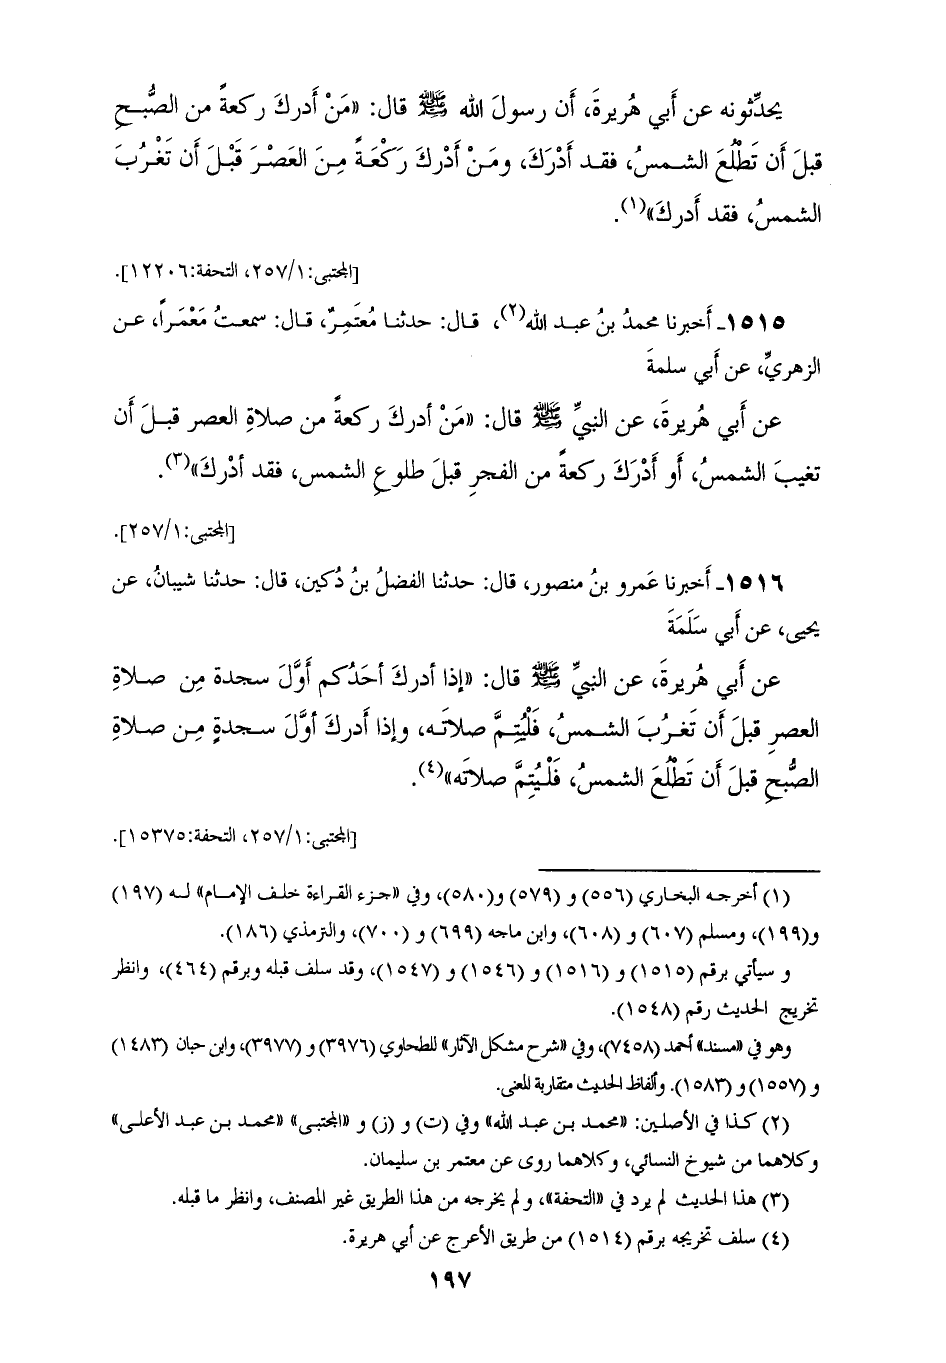 يحدِّثونه عن أَبي هُريرةَ، أَن رسولَ الله ﷺ قال: «مَنْ أَدركَ ركعةً من الصُّبحِ
قبلَ أَن تَطْلُعَ الشمسُ، فقد أَدْرَكَ، ومَنْ أَدْركَ رَكْعَةً مِنَ العَصْرَ قَبْلَ أَن تَغْرُبَ
الشمسُ، فقد أَدركَ»(١).
[المجتبى: ٢٥٧/١، التحفة: ١٢٢٠٦].
١٥١٥ـ أَخبرنا محمدُ بنُ عبد الله(٢)، قال: حدثنا مُعتَمِرٌ، قال: سمعتُ مَعْمَراً، عن
الزهريِّ، عن أَبي سلمةَ
عن أَبي هُريرةَ، عن النبيِّ ﷺ قال: «مَنْ أدركَ ركعةً من صلاةِ العصر قبلَ أَن
تغيبَ الشمسُ، أَو أَدْرَكَ ركعةً من الفجرِ قبلَ طلوعِ الشمس، فقد أدْركَ»(٣).
[المجتبى: ٢٥٧/١].
١٥١٦ـ أَخبرنا عَمرو بنُ منصور، قال: حدثنا الفضلُ بنُ دُكين، قال: حدثنا شيبانُ، عن
يحيى، عن أَبي سَلَمَةَ
عن أَبي هُريرةَ، عن النبيِّ ﷺ قال: «إذا أدركَ أحَدُكم أَوَّلَ سجدة مِن صلاةِ
العصرِ قبلَ أَن تَغرُبَ الشمسُ، فَلْيُتِمَّ صلاتَه، وإذا أَدركَ أوَّلَ سجدةٍ مِن صلاةِ
الصُّبحِ قبلَ أَن تَطْلُعَ الشمسُ، فَلْيُتِمَّ صلاتَه»(٤).
[المجتبى: ٢٥٧/١، التحفة: ١٥٣٧٥].
(١) أخرجه البخاري (٥٥٦) و (٥٧٩) و(٥٨٠)، وفي «جزء القراءة خلف الإمام» له (١٩٧)
و(١٩٩)، ومسلم (٦٠٧) و (٦٠٨)، وابن ماجه (٦٩٩) و (٧٠٠)، والترمذي (١٨٦).
و سيأتي برقم (١٥١٥) و (١٥١٦) و (١٥٤٦) و (١٥٤٧)، وقد سلف قبله وبرقم (٤٦٤)، وانظر
تخريج الحديث رقم (١٥٤٨).
وهو في «مسند» أحمد (٧٤٥٨)، وفي «شرح مشكل الآثار» للطحاوي (٣٩٧٦) و (٣٩٧٧)، وابن حبان (١٤٨٣)
و (١٥٥٧) و (١٥٨٣). وألفاظ الحديث متقاربة المعنى.
(٢) كذا في الأصلين: «محمد بن عبد الله» وفي (ت) و (ز) و «المجتبى» «محمد بن عبد الأعلى»
وكلاهما من شيوخ النسائي، وكلاهما روى عن معتمر بن سليمان.
(٣) هذا الحديث لم يرد في «التحفة»، و لم يخرجه من هذا الطريق غير المصنف، وانظر ما قبله.
(٤) سلف تخريجه برقم (١٥١٤) من طريق الأعرج عن أبي هريرة.
١٩٧